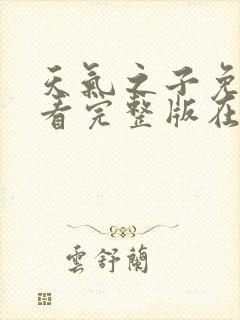 天氣之子免
看完整版在
雲舒蘭